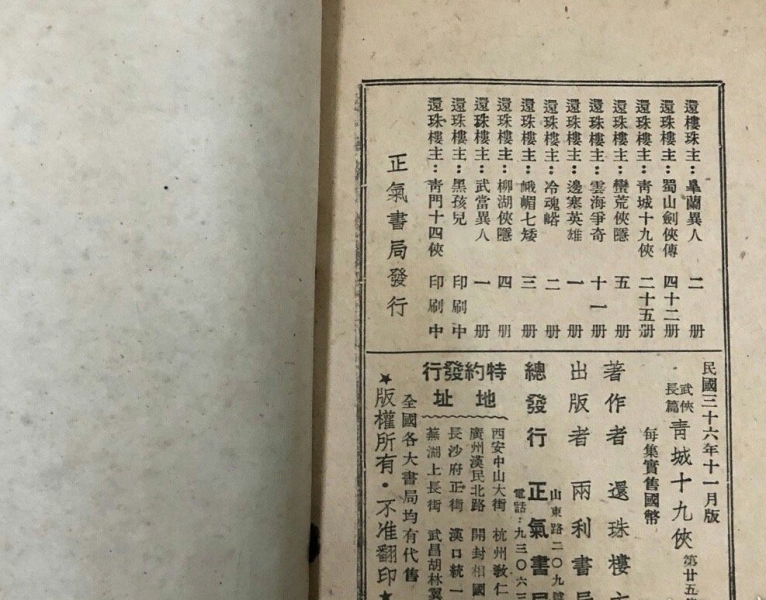 還樓珠主：皋蘭異人 二 册
還珠樓主：蜀山劍俠傳 四十二册
還珠樓主：靑城十九俠 二十五册
還珠樓主：蠻荒俠隱 五 册
還珠樓主：雲海爭奇 十一册
還珠樓主：邊塞英雄 一 册
還珠樓主：冷魂峪 二 册
還珠樓主：峨嵋七矮 三 册
還珠樓主：柳湖俠隱 四 册
還珠樓主：武當異人 一 册
還珠樓主：黑孩兒 印刷中
還珠樓主：靑門十四俠 印刷中
正氣書局發行
民國三十六年十一月版
武俠長篇 靑城十九俠 第廿五
每集實售國幣
著作者 還珠樓主
出版者 兩利書局
總發行 正氣書局
山東路二〇九號
電話：九三〇六三
特約發行地址
西安中山大街 杭州敎仁
廣州漢民北路 開封相國
長沙府正街 漢口統一
蕪湖上長街 武昌胡林翼
全國各大書局均有代售
★版權所有·不准翻印★